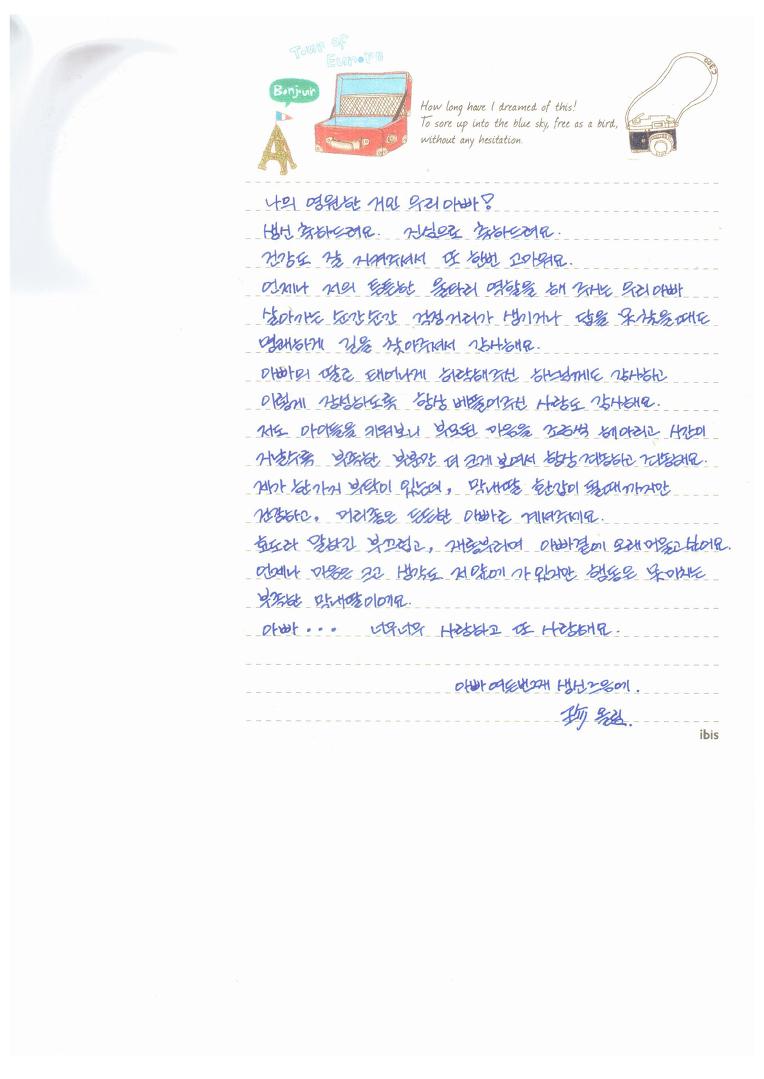 Tour of
Europe
Bonjour
How long have I dreamed of this!
To sore up into the blue sky, free as a bird,
without any hesitation.
나의 영원한 거인 우리아빠!
생신 축하드려요. 진심으로 축하드려요.
건강도 잘 지켜주셔서 또 한번 고마워요.
언제나 저의 튼튼한 울타리 역할을 해 주시는 우리아빠
살아가는 순간순간 걱정거리가 생기거나 답을 못찾을때도
명쾌하게 길을 찾아주셔서 감사해요.
아빠의 딸로 태어나게 허락해주신 하느님께도 감사하고
이렇게 장성하도록 항상 베풀어주신 사랑도 감사해요.
저도 아이들을 키워보니 부모된 마음을 조금씩 헤아리고 시간이
지날수록 부족한 부분만 더 크게 보여서 항상 죄송하고 죄송해요.
제가 한가지 부탁이 있는데, 막내딸 환갑이 될때까지만
건강하고, 머리좋은 든든한 아빠로 계셔주세요.
효도라 말하긴 부끄럽고, 재롱부리며 아빠곁에 오래머물고싶어요.
언제나 마음은 크고 생각도 저 앞에 가 있지만 행동은 못미치는
부족한 막내딸이에요.
아빠... 너무너무 사랑하고 또 사랑해요.
아빠 여든번째 생신즈음에.
올림.
ibis